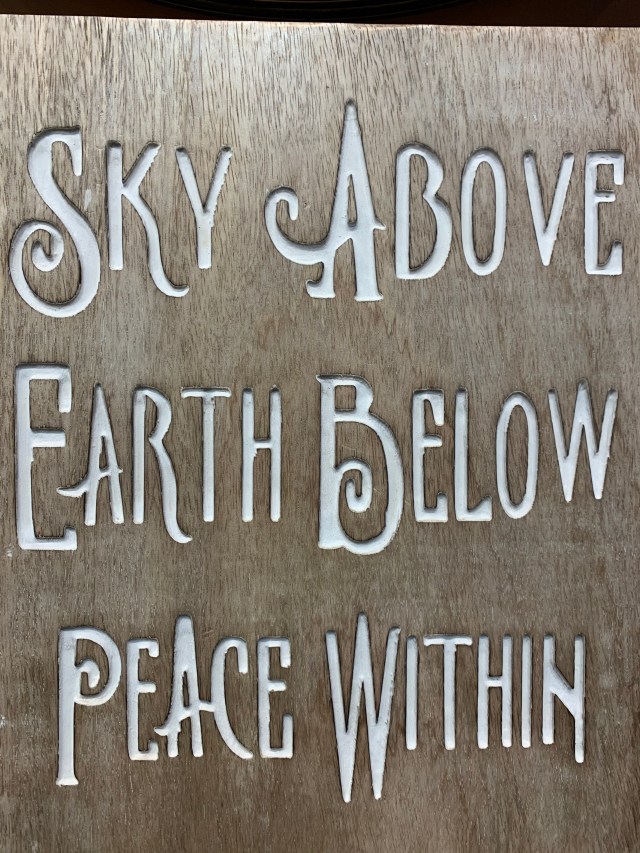 Sky Above
Earth Below
Peace Within